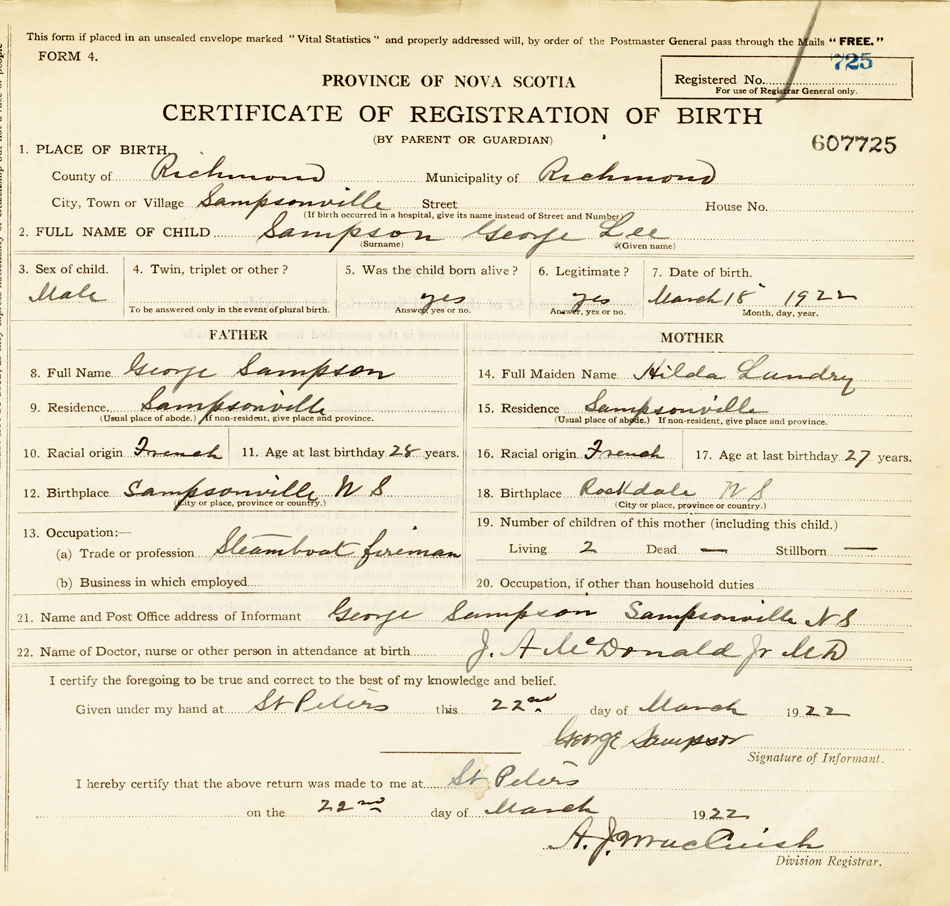 This form if placed in an unsealed envelope marked "Vital Statistics" and properly addressed will, by order of the Postmaster General pass through the Mails "FREE."
FORM 4.
725
PROVINCE OF NOVA SCOTIA
Registered No.
For use of Registrar General only.
CERTIFICATE OF REGISTRATION OF BIRTH
(BY PARENT OR GUARDIAN)
607725
1. PLACE OF BIRTH
County of Richmond Municipality of Richmond
City, Town or Village Sampsonville Street House No.
(If birth occurred in a hospital, give its name instead of Street and Number)
2. FULL NAME OF CHILD Sampson George Lee
(Surname) (Given name)
3. Sex of child. 4. Twin, triplet or other? 5. Was the child born alive? 6. Legitimate? 7. Date of birth.
Male yes yes March 18 1922
To be answered only in the event of plural birth. Answer, yes or no. Answer, yes or no. Month, day, year.
FATHER MOTHER
8. Full Name George Sampson 14. Full Maiden Name Hilda Landry
9. Residence Sampsonville 15. Residence Sampsonville
(Usual place of abode.) If non-resident, give place and province. (Usual place of abode.) If non-resident, give place and province.
10. Racial origin French 11. Age at last birthday 28 years. 16. Racial origin French 17. Age at last birthday 27 years.
12. Birthplace Sampsonville N S 18. Birthplace Rockdale N S
(City or place, province or country.) (City or place, province or country.)
13. Occupation:— 19. Number of children of this mother (including this child.)
(a) Trade or profession Steamboat fireman Living 2 Dead — Stillborn —
(b) Business in which employed 20. Occupation, if other than household duties
21. Name and Post Office address of Informant George Sampson Sampsonville N S
22. Name of Doctor, nurse or other person in attendance at birth J. A McDonald Jr MD
I certify the foregoing to be true and correct to the best of my knowledge and belief.
Given under my hand at St Peters this 22nd day of March 1922
George Sampson
Signature of Informant.
I hereby certify that the above return was made to me at St Peters
on the 22nd day of March 1922
A. J. MacCuish
Division Registrar.